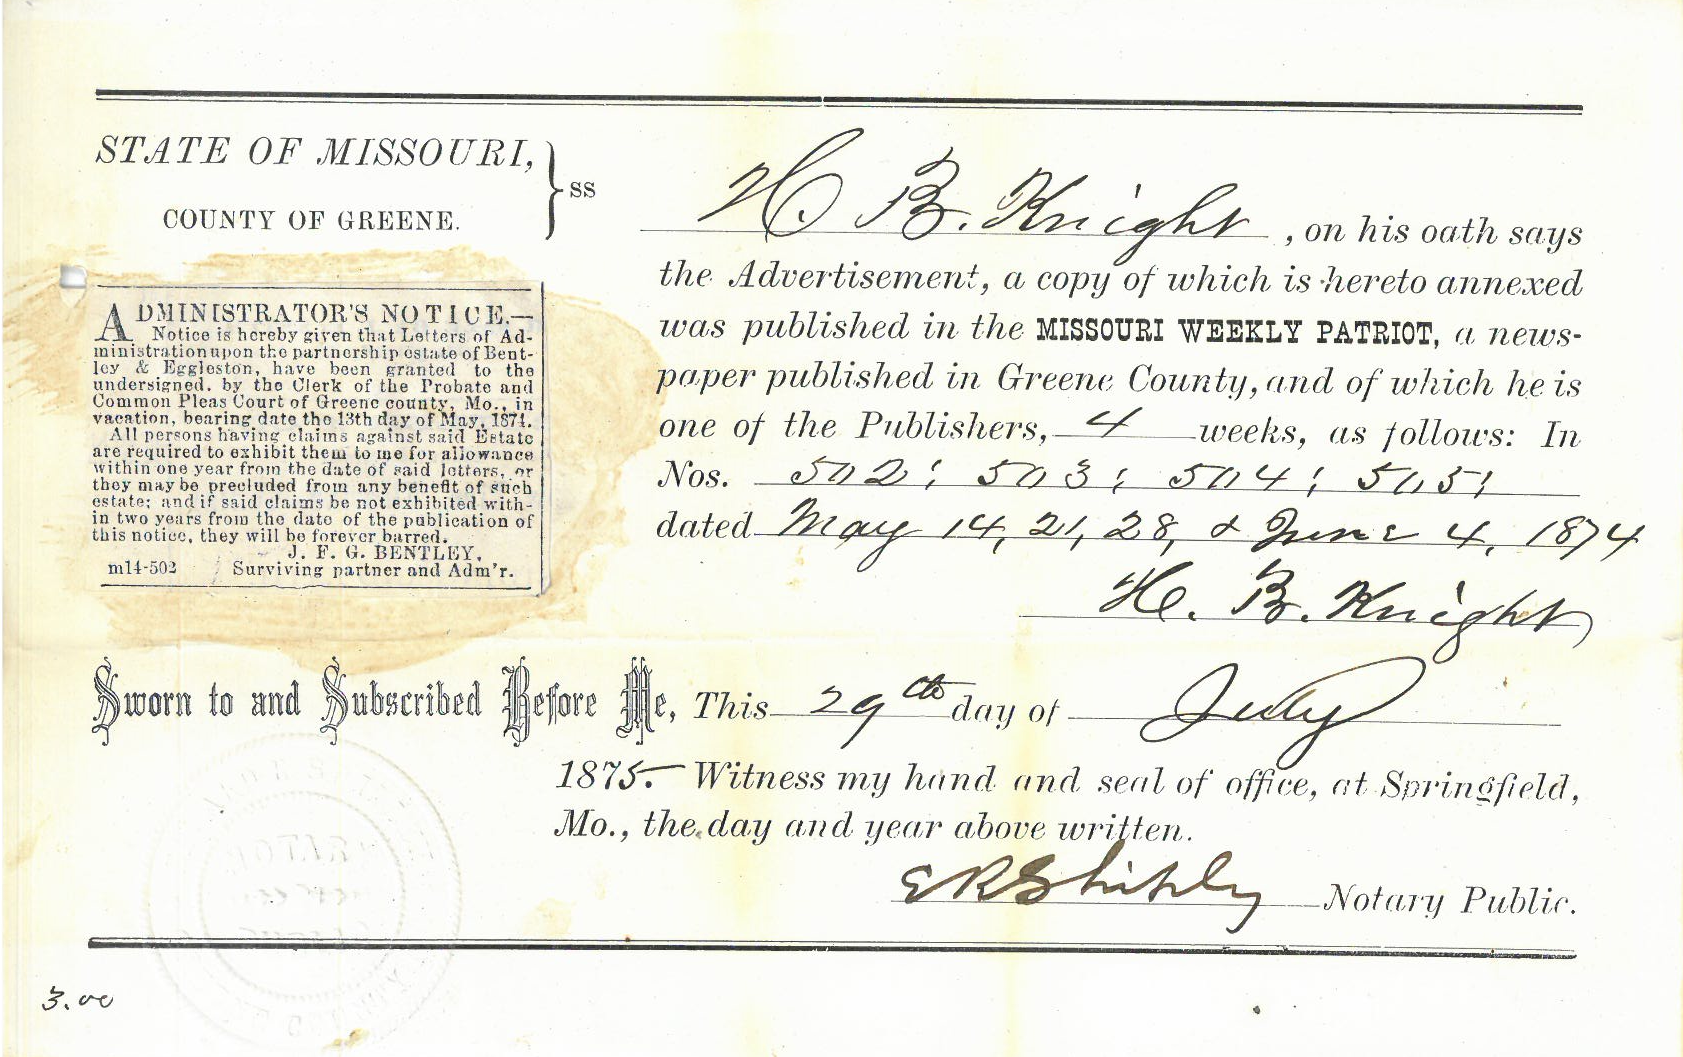 STATE OF MISSOURI,
COUNTY OF GREENE.
ss
H B. Knight, on his oath says
the Advertisement, a copy of which is hereto annexed
was published in the MISSOURI WEEKLY PATRIOT, a news-
paper published in Greene County, and of which he is
one of the Publishers, 4 weeks, as follows: In
Nos. 502; 503; 504; 505;
dated May 14, 21, 28, & June 4, 1874
H. B. Knight
ADMINISTRATOR'S NOTICE.—
Notice is hereby given that Letters of Ad-
ministration upon the partnership estate of Bent-
ley & Eggleston, have been granted to the
undersigned, by the Clerk of the Probate and
Common Pleas Court of Greene county, Mo., in
vacation, bearing date the 13th day of May, 1874.
All persons having claims against said Estate
are required to exhibit them to me for allowance
within one year from the date of said letters, or
they may be precluded from any benefit of such
estate; and if said claims be not exhibited with-
in two years from the date of the publication of
this notice, they will be forever barred.
J. F. G. BENTLEY,
m14-502 Surviving partner and Adm'r.
Sworn to and Subscribed Before Me, This 29th day of July
1875. Witness my hand and seal of office, at Springfield,
Mo., the day and year above written.
E R Shipley Notary Public.
3.00